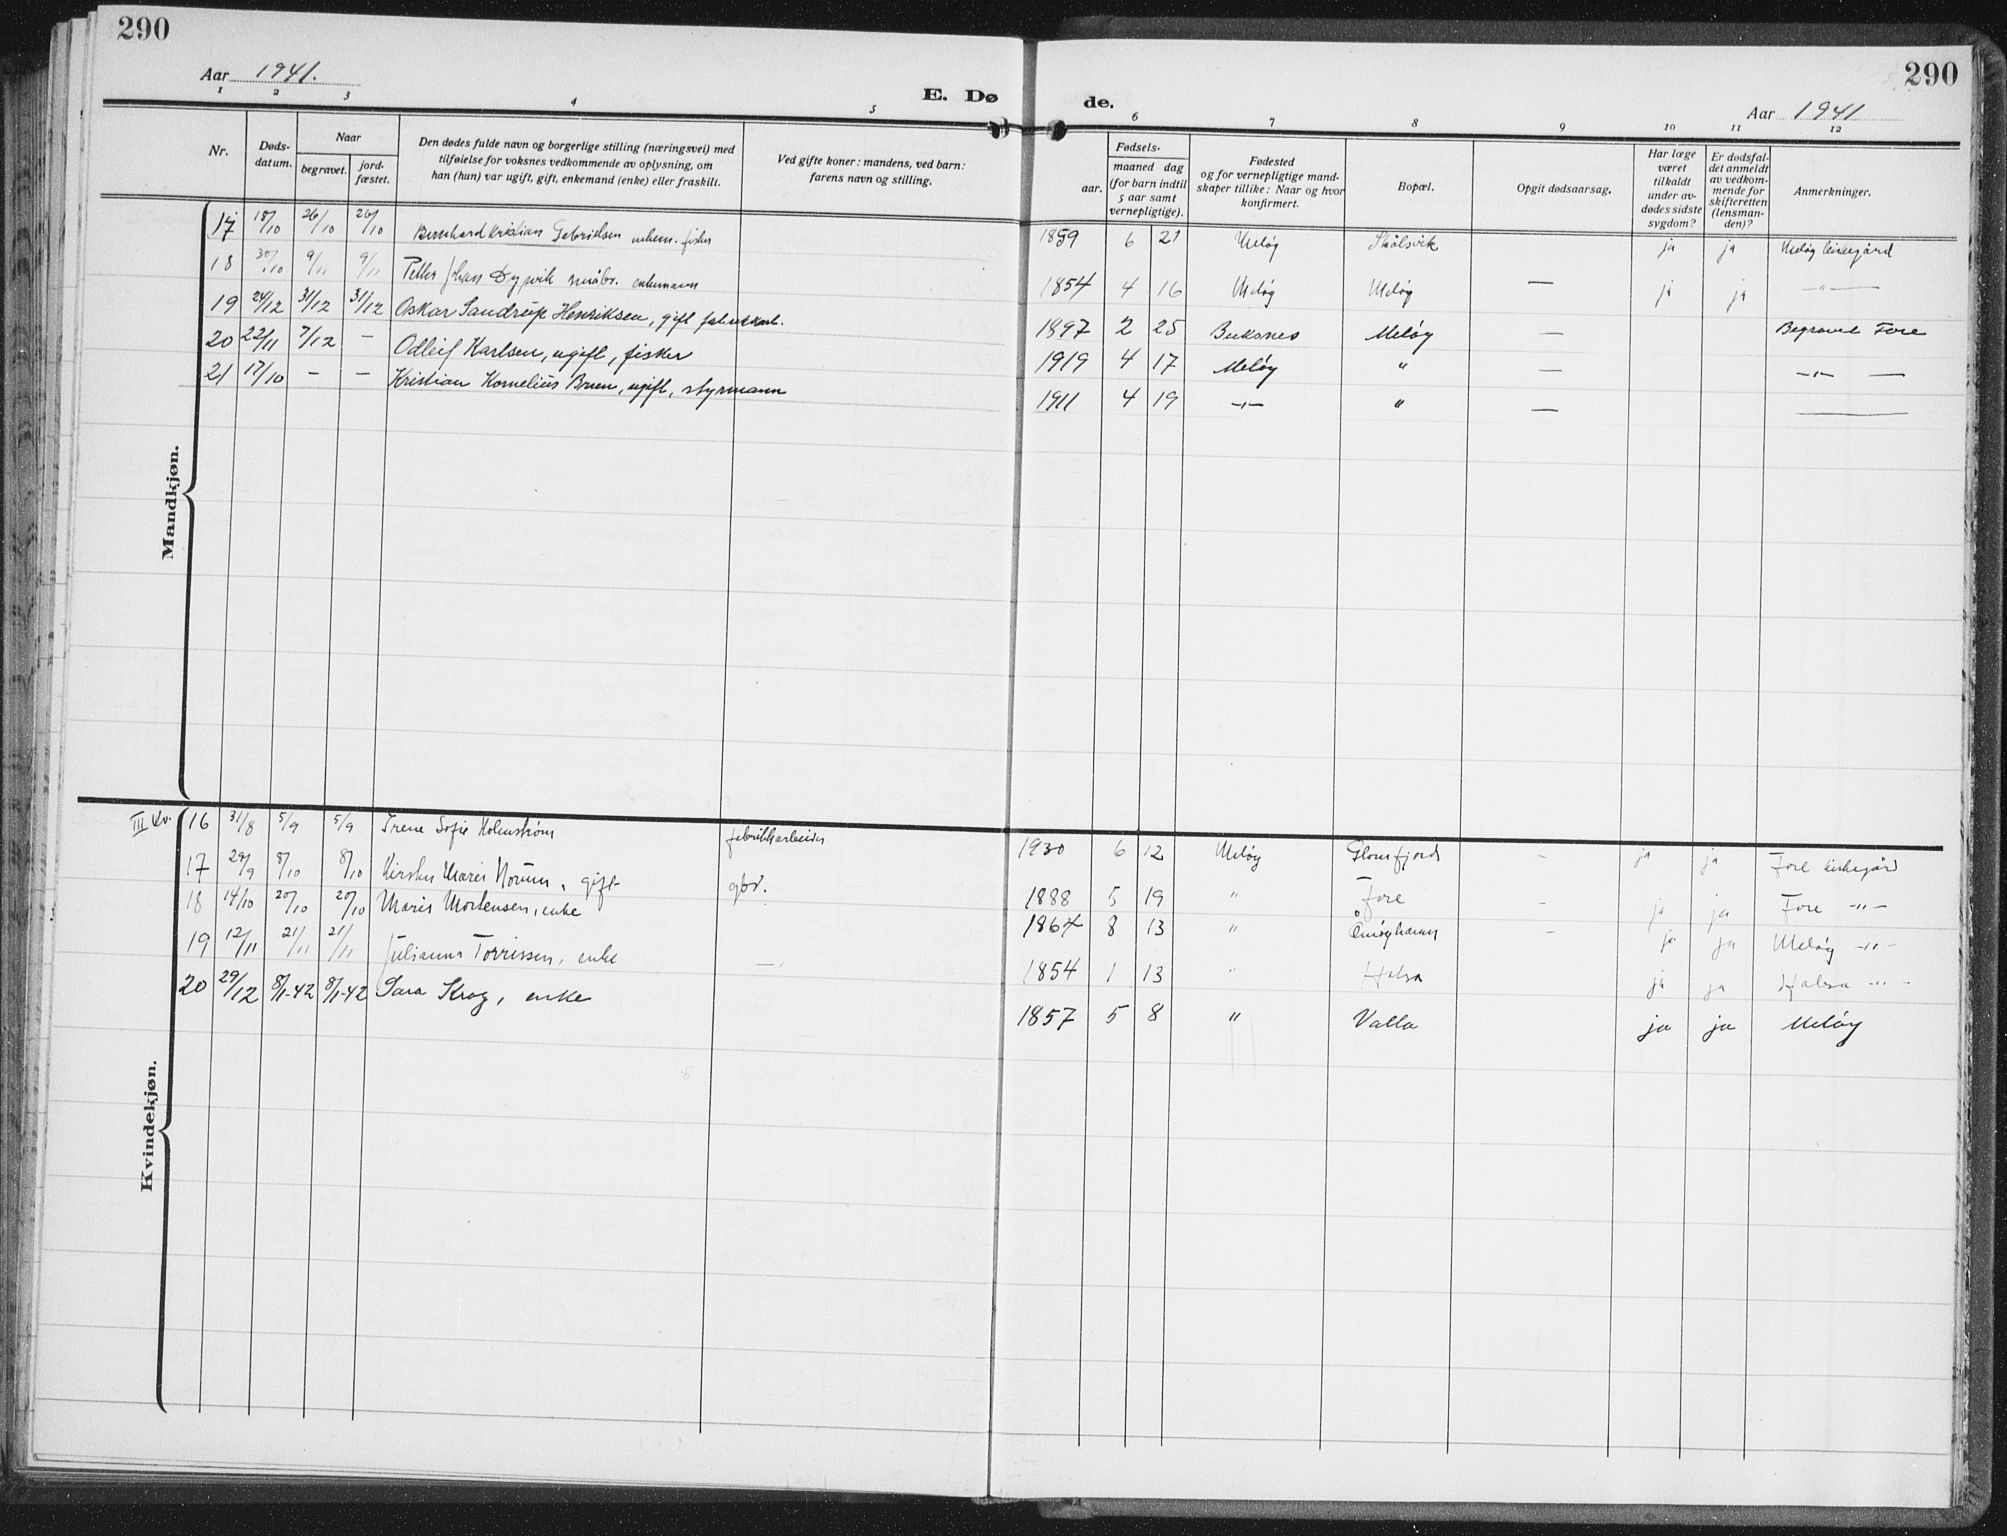 290
290
Aar 1941.
E. Dø
de.
Aar 1941
1 2 3 4 5 6 7 8 9 10 11 12
Nr.
Døds-
datum.
Naar
begravet.
jord-
fæstet.
Den dødes fulde navn og borgerlige stilling (næringsvei) med
tilføielse for voksnes vedkommende av oplysning, om
han (hun) var ugift, gift, enkemand (enke) eller fraskilt.
Ved gifte koner: mandens, ved barn:
farens navn og stilling.
Fødsels-
aar.
maaned dag
(for barn indtil
5 aar samt
vernepligtige).
Fødested
og for vernepligtige mand-
skaper tillike: Naar og hvor
konfirmert.
Bopæl.
Opgit dødsaarsag.
Har læge
været
tilkaldt
under av-
dødes sidste
sygdom?
Er dødsfal-
det anmeldt
av vedkom-
mende for
skifteretten
(lensman-
den)?
Anmerkninger.
Mandkjøn.
17 18/10 26/10 26/10 Bernhard Kristian Gabrielsen enkem. fisker 1859 6 21 Meløy Skålsvik ja ja Meløy kirkegård
18 30/10 9/11 9/11 Petter Johan Dypvik småbr. enkemann 1854 4 16 Meløy Meløy — ja ja —"—
19 24/12 31/12 31/12 Oskar Sandrup Henriksen, gift fabrikkarb. 1897 2 25 Buksnes Meløy — Begravet Fore
20 22/11 7/12 — Odleif Karlsen, ugift, fisker 1919 4 17 Meløy " — —"— —
21 17/10 — — Kristian Kornelius Bruun, ugift, styrmann 1911 4 19 —"— " — —
Kvindekjøn.
III Kv. 16 31/8 5/9 5/9 Irene Sofie Holmstrøm fabrikkarbeider 1930 6 12 Meløy Glomfjord — ja ja Fore kirkegård
17 29/9 8/10 8/10 Kirsten Marie Norum, gift gbr. 1888 5 19 " Fore — ja ja Fore —"—
18 14/10 20/10 20/10 Marie Mortensen, enke 1864 8 13 " — ja ja Meløy —"—
19 12/11 21/11 21/11 Julianna Torrissen, enke — 1854 1 13 " Halsa ja ja Halsa —"—
20 29/12 8/1-42 8/1-42 Sara Krog, enke 1857 5 8 " Valla ja ja Meløy